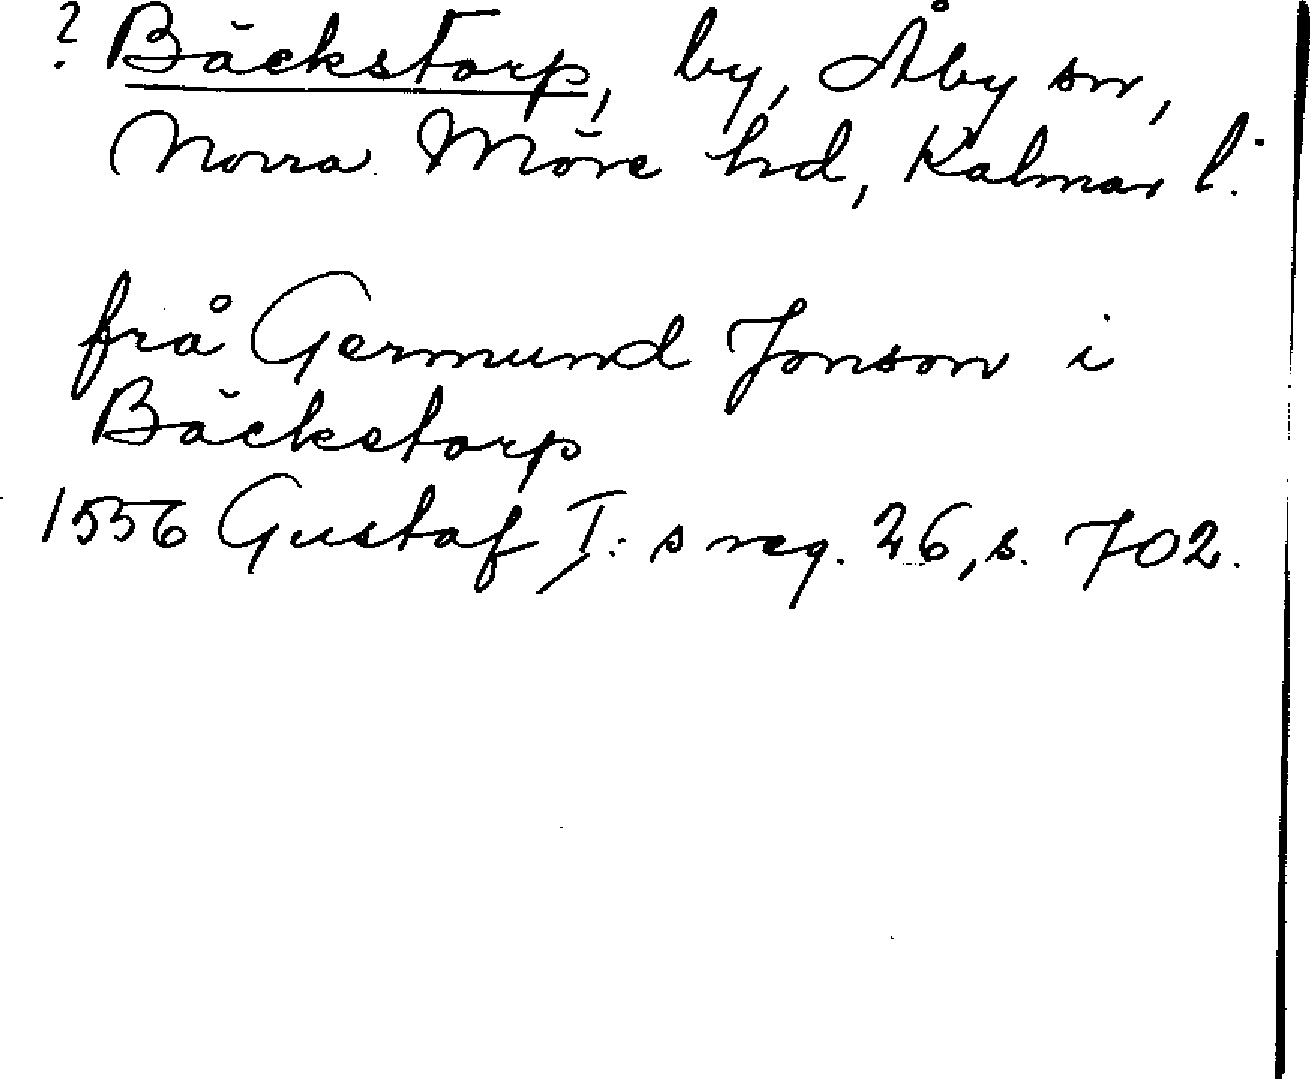 ? Bäckstorp, by, Åby sn,
Norra Möre hd, Kalmar l.
frå Germund Jonson i
Bäckstorp
1556 Gustaf I:s reg. 26, s. 702.